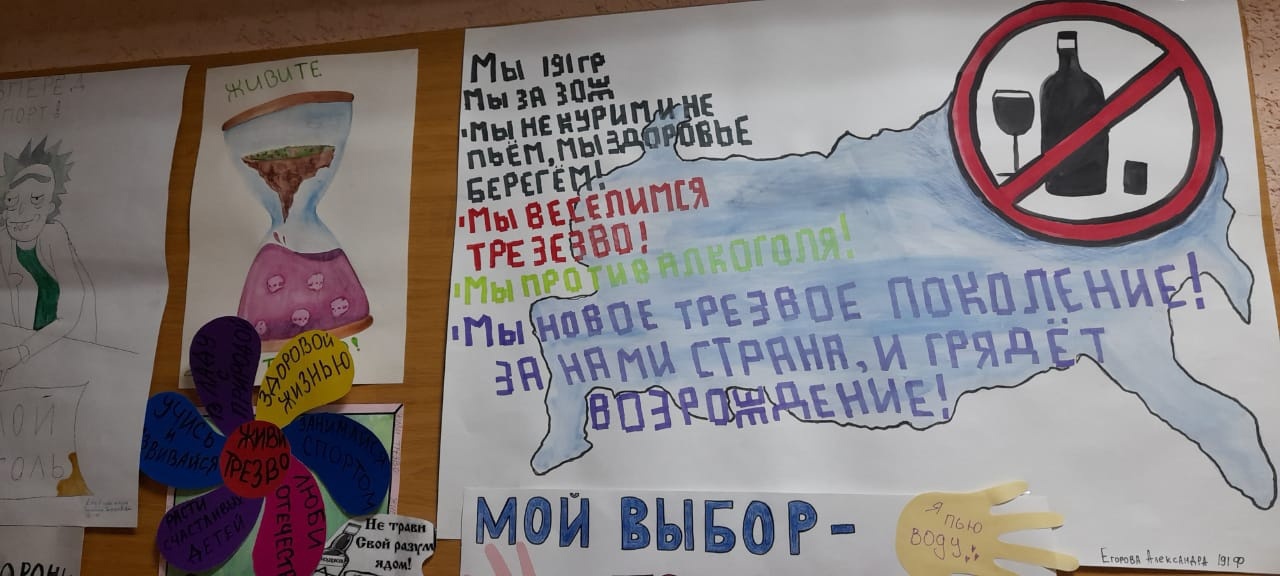 ВПЕРЁД
СПОРТ!
ЛОЙ
ГОЛЬ
ЖИВИТЕ
Мы 191гр
Мы за ЗОЖ
'Мы не курим и не
пьём, мы здоровье
берегём!
'Мы веселимся
трезезво!
'Мы против алкоголя!
'Мы новое трезвое поколение!
За нами страна, и грядёт
возрождение!
В ЛАДУ
С
ПРИРОДОЙ
ЗДОРОВОЙ
ЖИЗНЬЮ
УЧИСЬ
И
РАЗВИВАЙСЯ
ЖИВИ
ТРЕЗВО
ЗАНИМАЙСЯ
СПОРТОМ
РАСТИ
СЧАСТЛИВЫХ
ДЕТЕЙ
ЛЮБИ
ОТЕЧЕСТ
Не трави
Свой разум
ядом!
МОЙ ВЫБОР-
Я пью
воду
Егорова Александра 191Ф